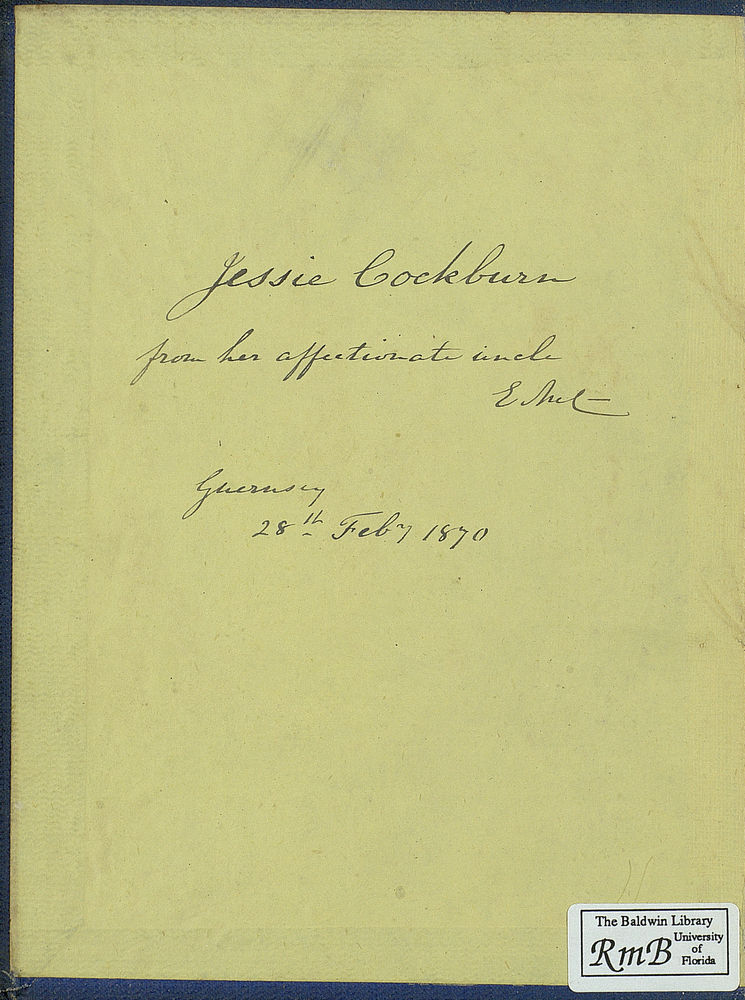 Jessie Cockburn
from her affectionate uncle
E
Guernsey
28th Feby 1870
The Baldwin Library
RmB University
of
Florida